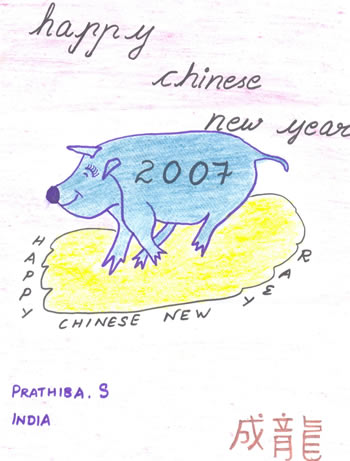 happy
chinese
new year
2007
HAPPY CHINESE NEW YEAR
PRATHIBA. S
INDIA
成龍